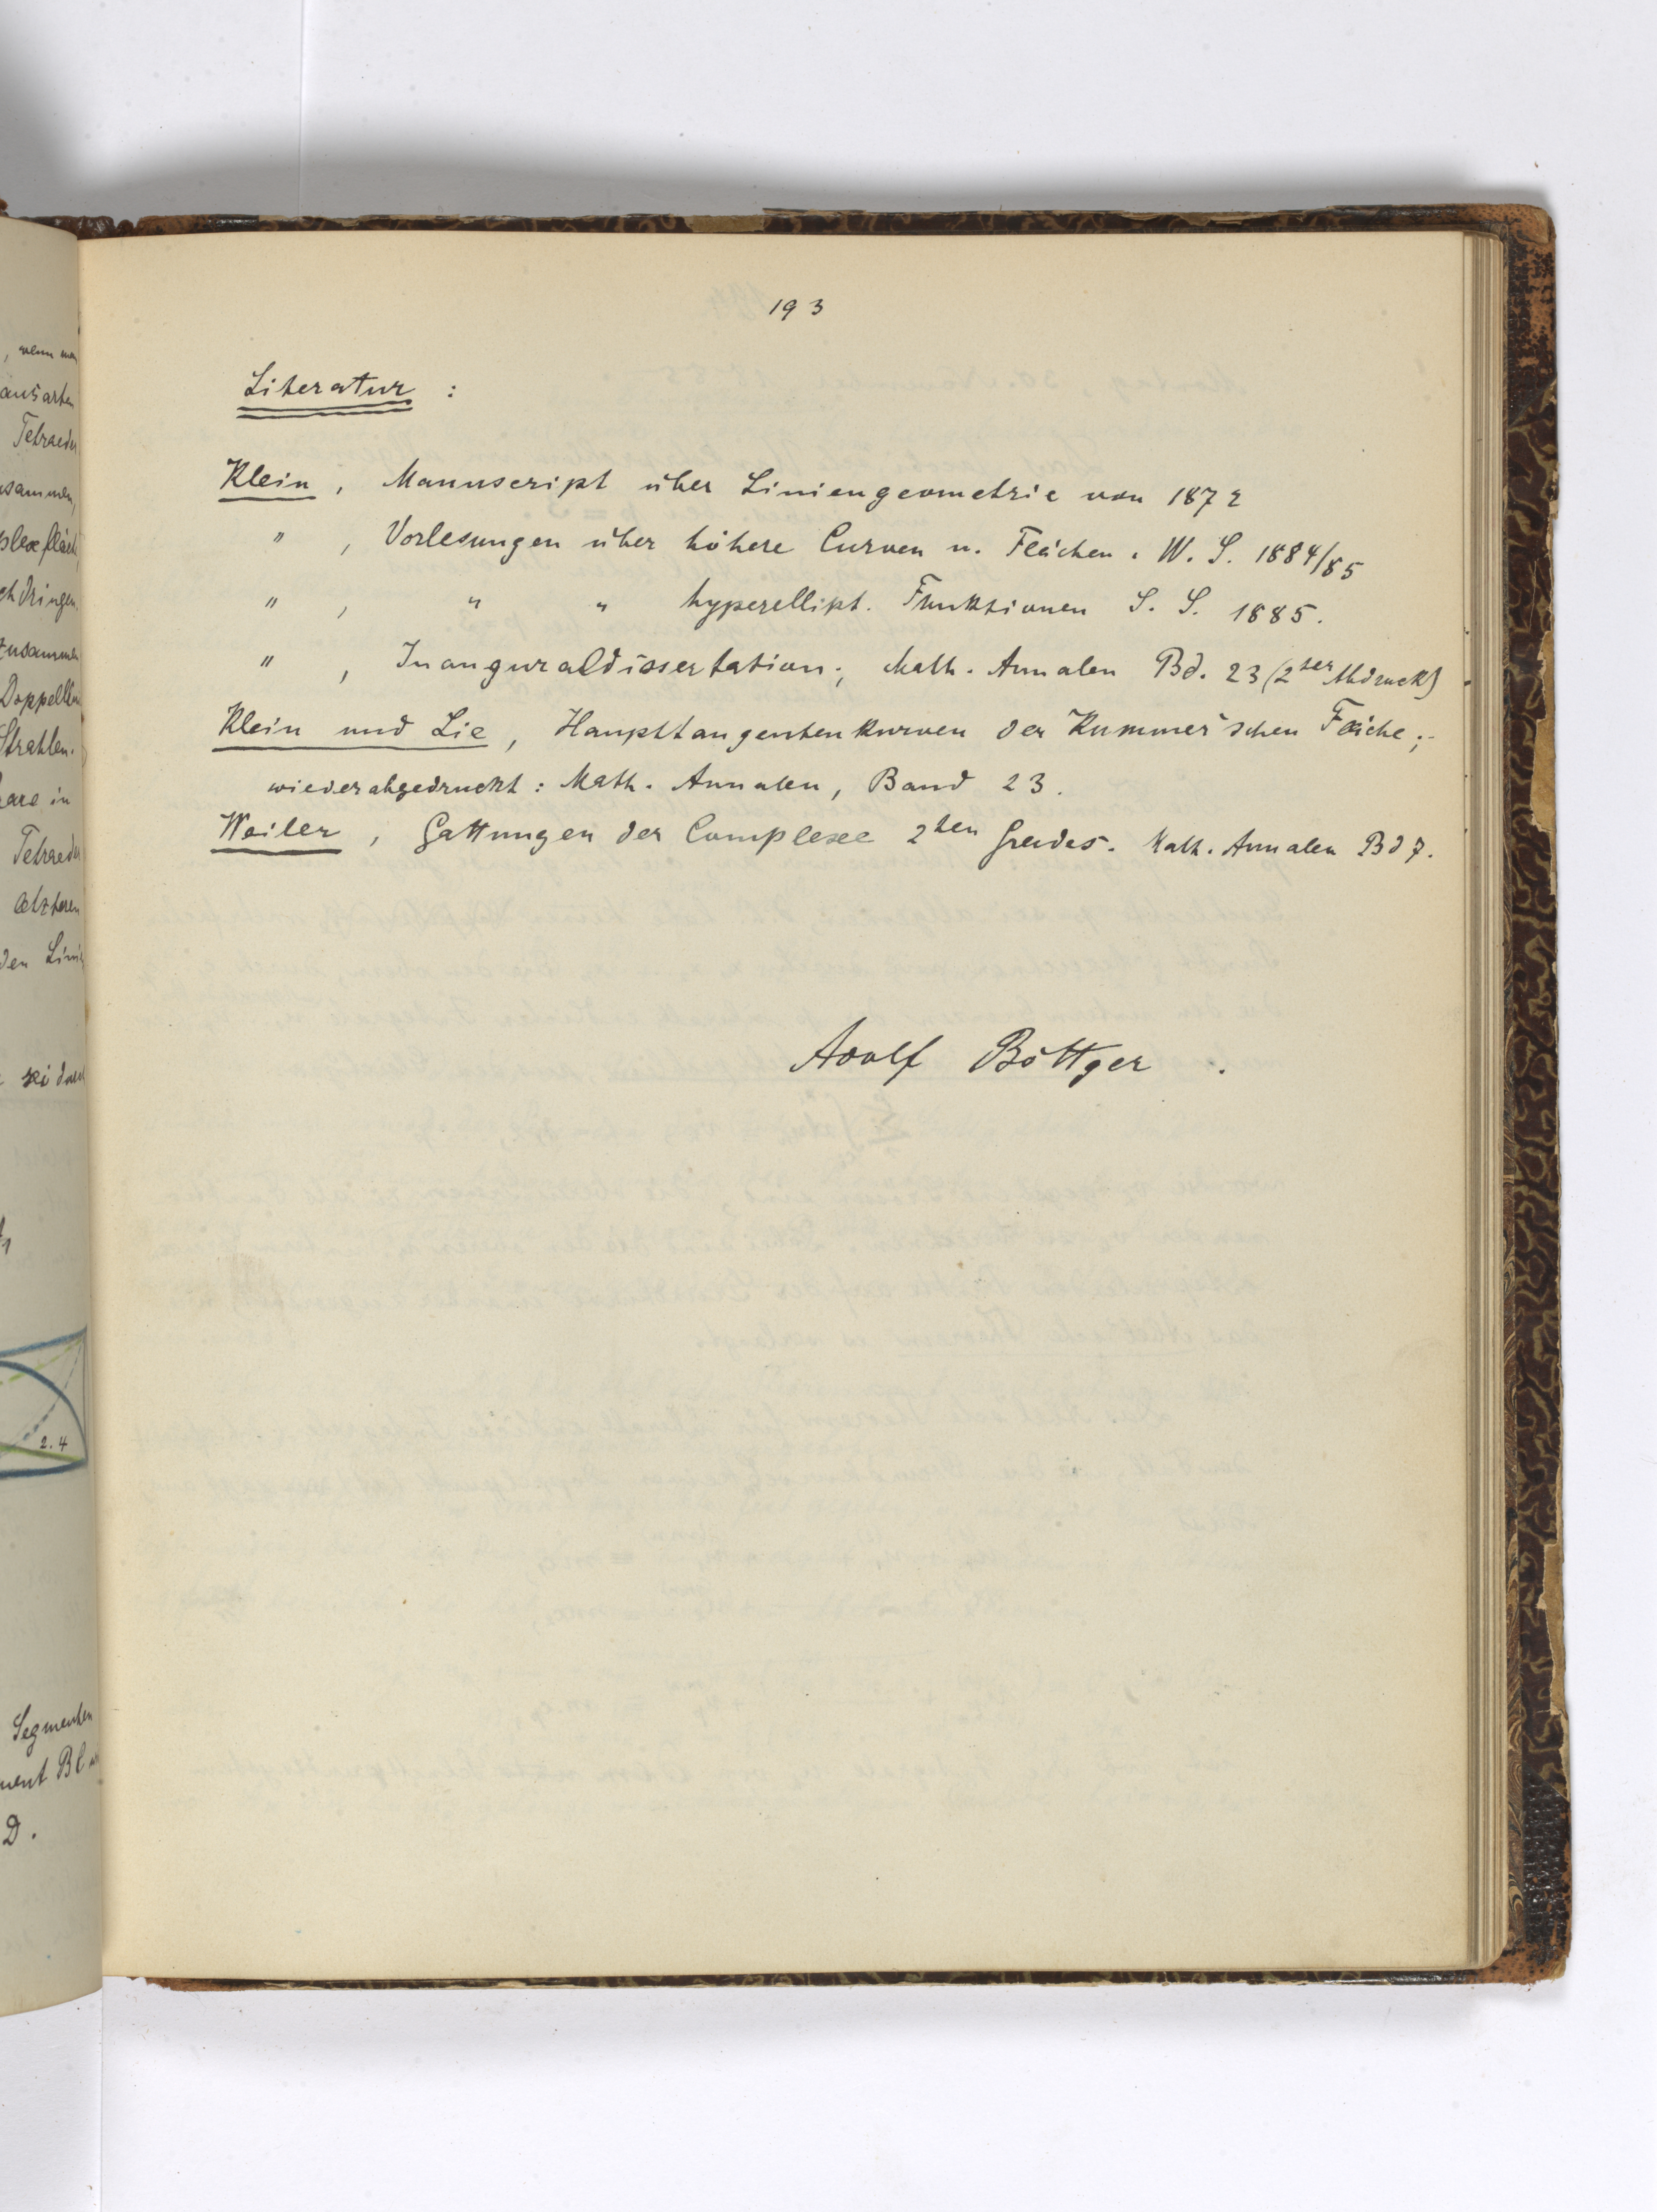 193
Literatur :
Klein, Manuscript über Liniengeometrie von 1872
" , Vorlesungen über höhere Curven u. Flächen. W. S. 1884/85
" , " " hyperellipt. Funktionen S. S. 1885.
" , Inauguraldissertation; Math. Annalen Bd. 23 (2ter Abdruck)
Klein und Lie, Haupttangentenkurven der Kummer'schen Fläche;
wiederabgedruckt: Math. Annalen, Band 23.
Weiler, Gattungen der Complexe 2ten Grades. Math. Annalen Bd 7.
Adolf Böttger.
, wenn man
ausarten
Tetraeder
Doppellinien
Strahlen.
in
Tetraeder
den
sei
2.4
Segmenten
D.